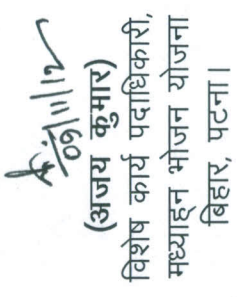 09/11/12
(अजय कुमार)
विशेष कार्य पदाधिकारी,
मध्याह्न भोजन योजना
बिहार, पटना।